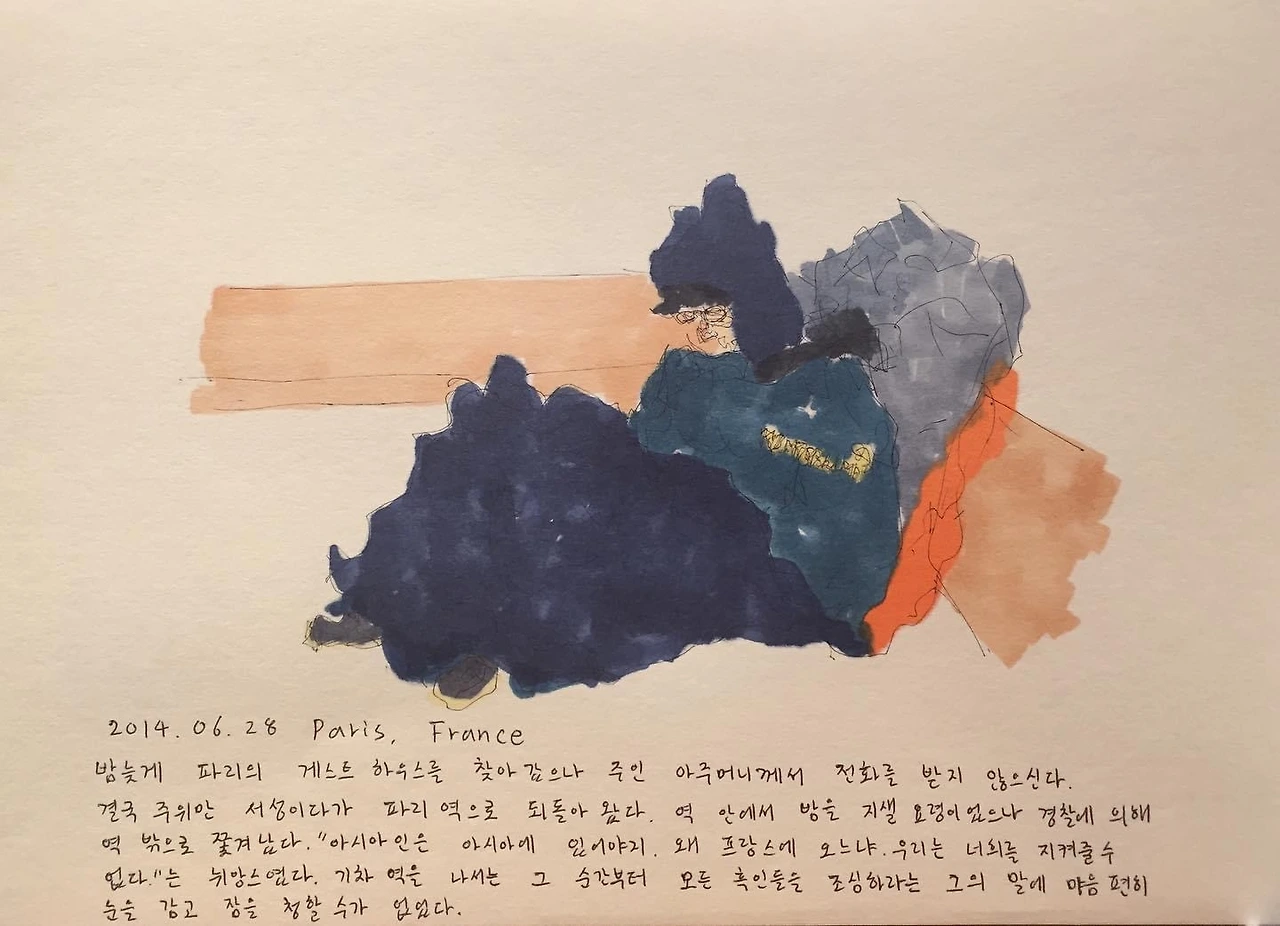 2014. 06. 28 Paris, France
밤늦게 파리의 게스트 하우스를 찾아갔으나 주인 아주머니께서 전화를 받지 않으신다.
결국 주위만 서성이다가 파리역으로 되돌아 왔다. 역 안에서 밤을 지샐 요령이었으나 경찰에 의해
역 밖으로 쫓겨났다. "아시아인은 아시아에 있어야지. 왜 프랑스에 오느냐. 우리는 너희를 지켜줄 수
없다."는 뉘앙스였다. 기차 역을 나서는 그 순간부터 모든 흑인들을 조심하라는 그의 말에 마음 편히
눈을 감고 잠을 청할 수가 없었다.